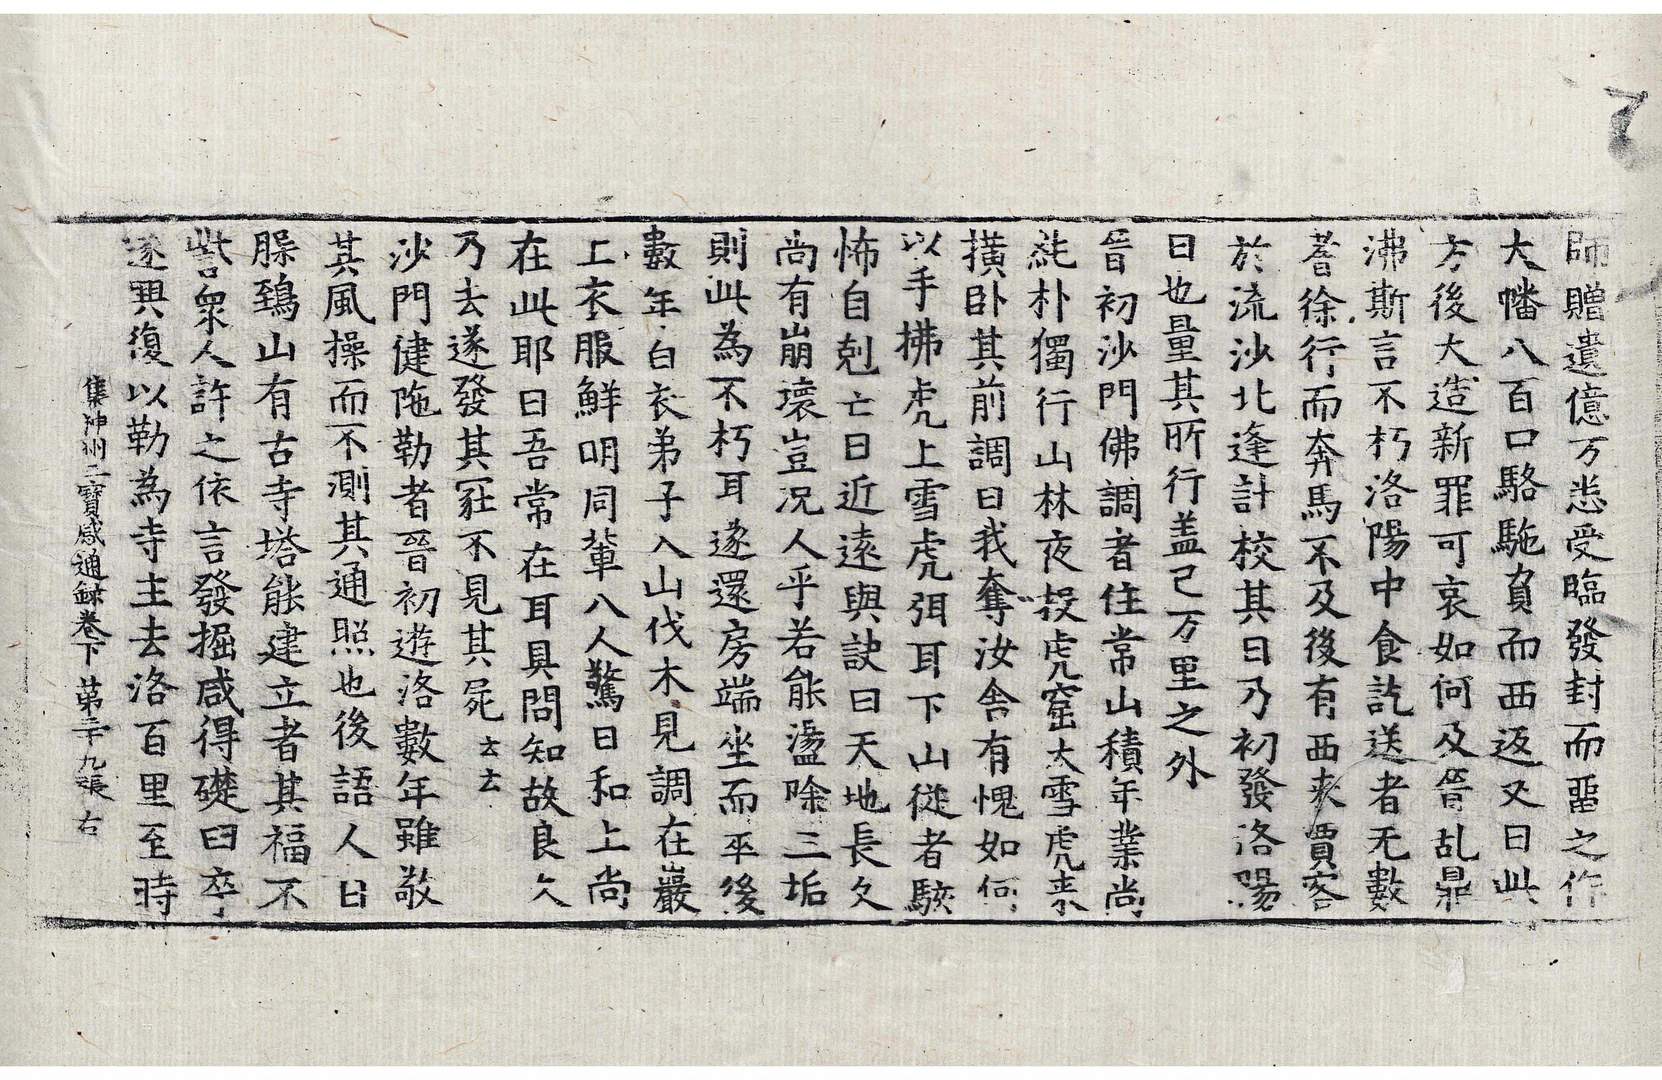 師贈遺億万悉受臨發封而畱之作
大幡八百口駱駞負而西返又曰此
方後大造新罪可哀如何及晉乱鼎
沸斯言不朽洛陽中食訖送者无數
耆徐行而奔馬不及後有西来賈客
於流沙北逢計校其日乃初發洛陽
日也量其所行盖已万里之外
晉初沙門佛調者住常山積年業尚
純朴獨行山林夜投虎窟大雪虎来
橫卧其前調曰我奪汝舍有愧如何
以手拂虎上雪虎弭耳下山從者駭
怖自剋亡日近遠與訣曰天地長久
尚有崩壞豈況人乎若能盪除三垢
則此為不朽耳遂還房端坐而卒後
數年白衣弟子入山伐木見調在巖
上衣服鮮明同輩八人驚曰和上尚
在此耶曰吾常在耳具問知故良久
乃去遂發其冡不見其屍云云
沙門健陁勒者晉初遊洛數年雖敬
其風操而不測其通照也後語人曰
䐗鵄山有古寺塔能建立者其福不
訾衆人許之依言發掘咸得礎臼卒
遂興復以勒為寺主去洛百里至時
集神州三寶感通錄卷下 第二十九張 右